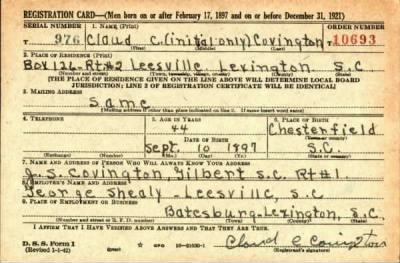 REGISTRATION CARD—(Men born on or after February 17, 1897 and on or before December 31, 1921)
SERIAL NUMBER 1. NAME (Print) ORDER NUMBER
T 976 Claud C.(initial only) Covington T 10693
(First) (Middle) (Last)
2. PLACE OF RESIDENCE (Print)
Box 126-Rt#2 Leesville Lexington S.C
(Number and street) (Town, township, village, or city) (County) (State)
[THE PLACE OF RESIDENCE GIVEN ON THE LINE ABOVE WILL DETERMINE LOCAL BOARD
JURISDICTION; LINE 2 OF REGISTRATION CERTIFICATE WILL BE IDENTICAL]
3. MAILING ADDRESS
Same
[Mailing address if other than place indicated on line 2. If same insert word same]
4. TELEPHONE 5. AGE IN YEARS 6. PLACE OF BIRTH
44 Chesterfield
DATE OF BIRTH (Town or county)
Sept. 10 1897 S.C.
(Exchange) (Number) (Mo.) (Day) (Yr.) (State or country)
7. NAME AND ADDRESS OF PERSON WHO WILL ALWAYS KNOW YOUR ADDRESS
J. S. Covington Gilbert S.C. Rt#1
8. EMPLOYER'S NAME AND ADDRESS
George Shealy-Leesville, S.C
9. PLACE OF EMPLOYMENT OR BUSINESS
Batesburg-Lexington, S.C.
(Number and street or R. F. D. number) (Town) (County) (State)
I AFFIRM THAT I HAVE VERIFIED ABOVE ANSWERS AND THAT THEY ARE TRUE.
D. S. S. Form 1
(Revised 1-1-42) GPO 16-21630-1 Claud C Covington